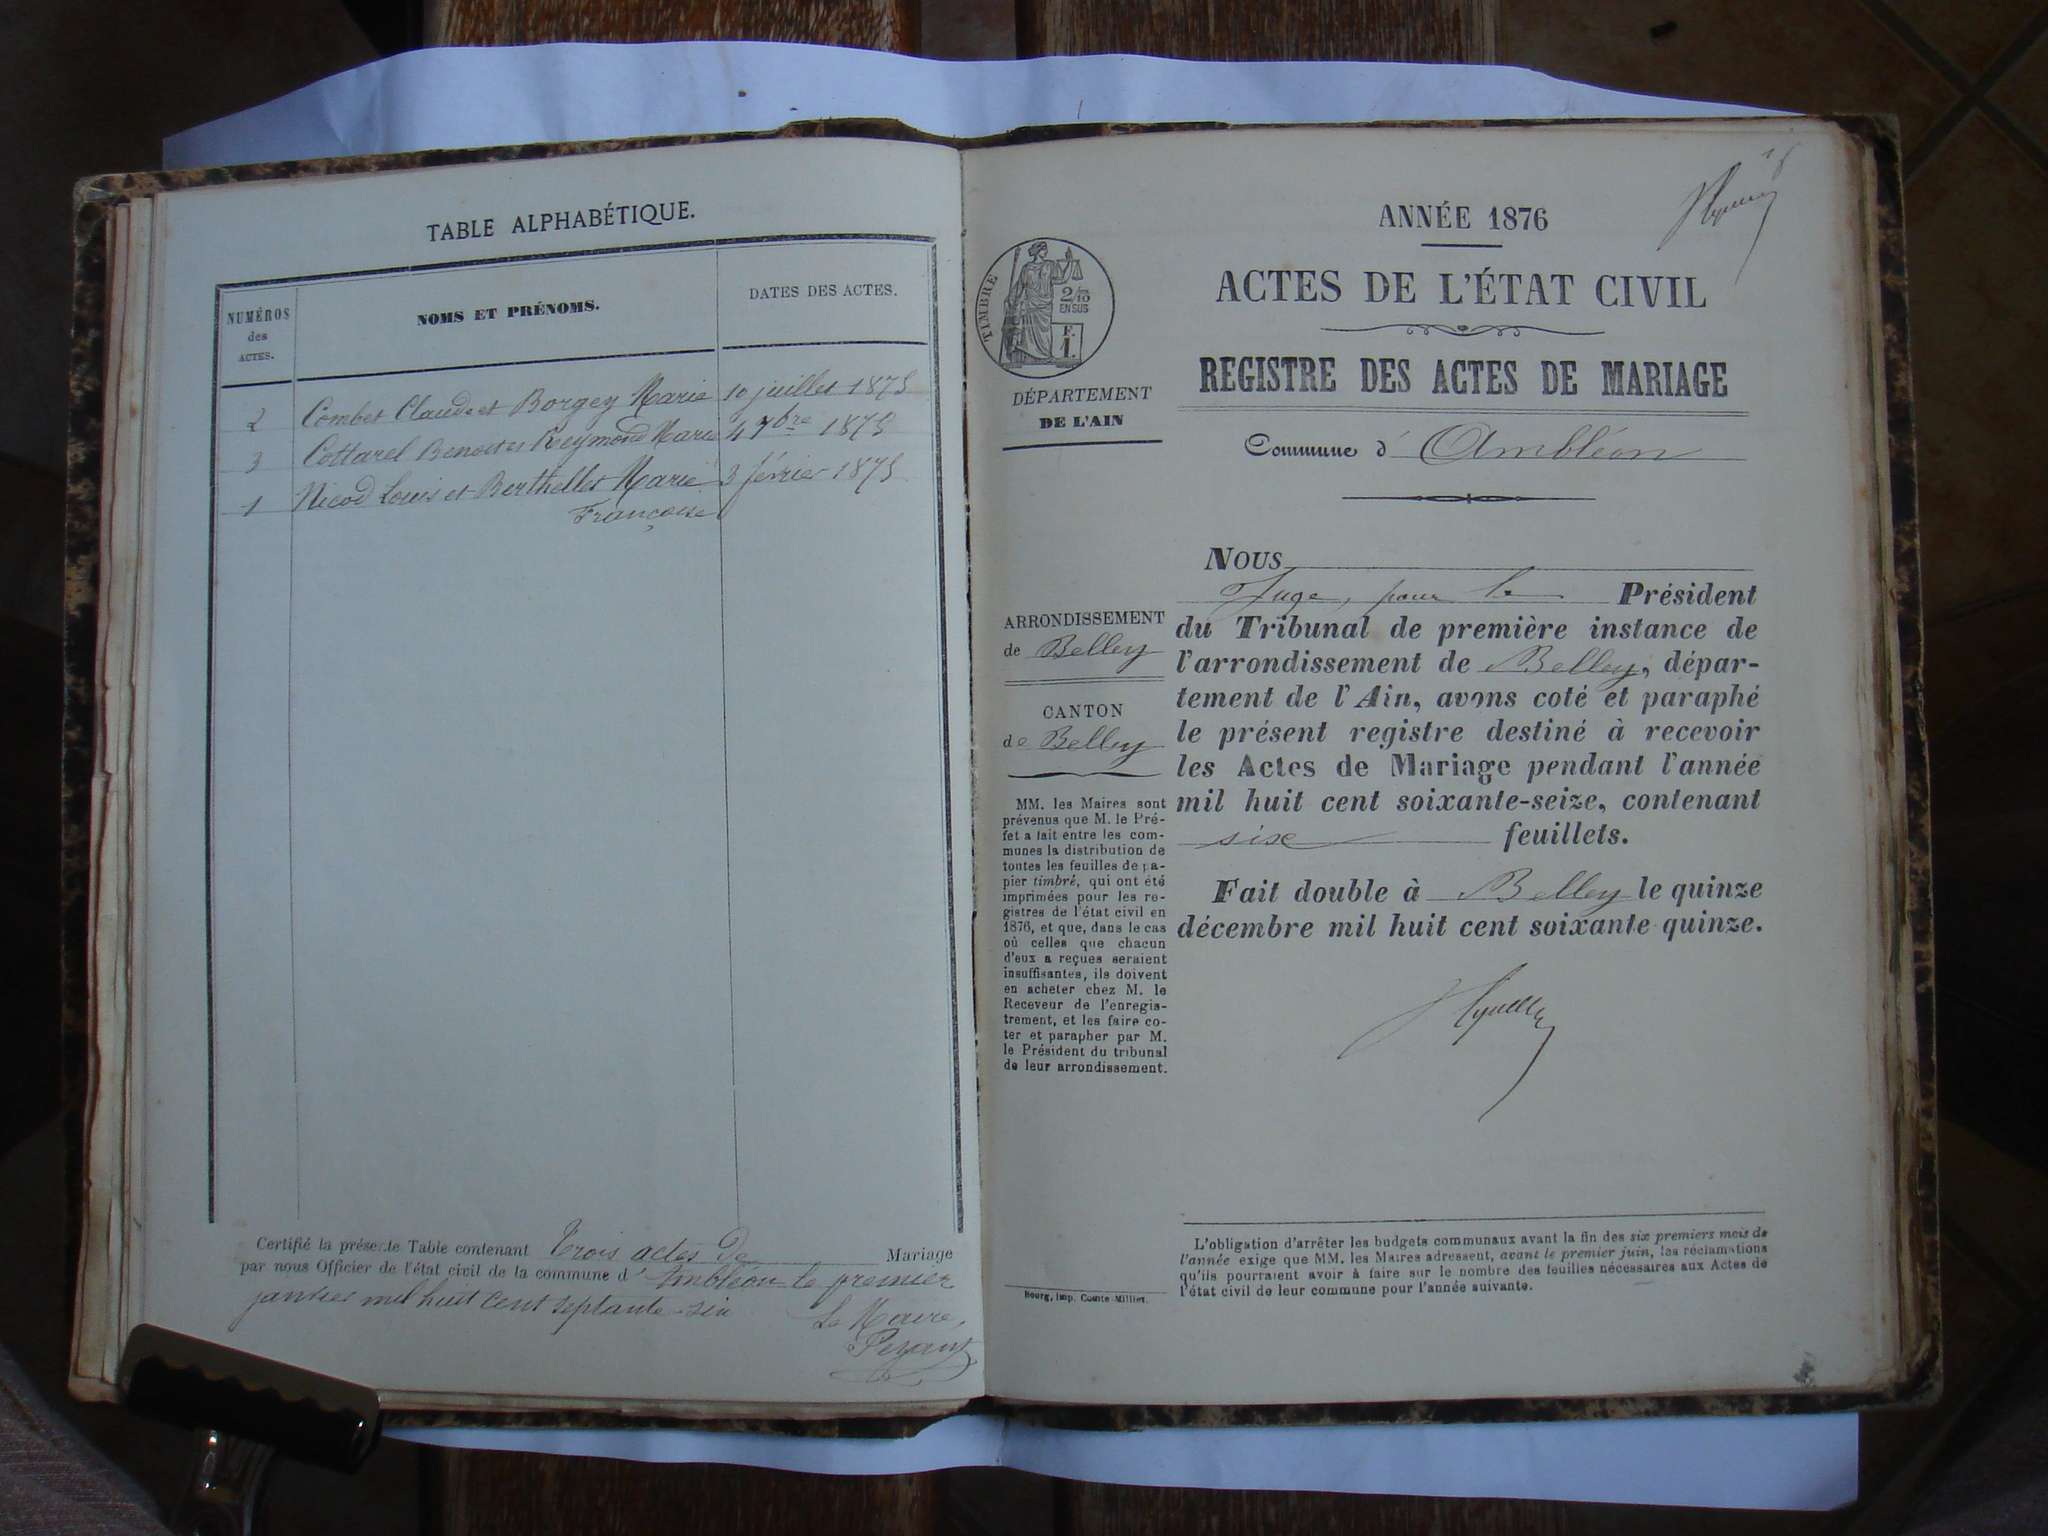 TABLE ALPHABÉTIQUE.
NUMÉROS
des
ACTES.
NOMS ET PRÉNOMS.
DATES DES ACTES.
2 Combet Claude et Borgey Marie 10 juillet 1875
3 Cottarel Benoit et Reymond Marie 4 7bre 1875
1 Nicod Louis et Berthellet Marie 3 février 1875
Françoise
Certifié la présente Table contenant trois actes de Mariage
par nous Officier de l'état civil de la commune d'Ambléon le premier
janvier mil huit cent septante-six
Le Maire,
ANNÉE 1876
ACTES DE L'ÉTAT CIVIL
REGISTRE DES ACTES DE MARIAGE
Commune d' Ambléon
TIMBRE
2/10
EN SUS
F.
1.
DÉPARTEMENT
DE L'AIN
ARRONDISSEMENT
de Belley
CANTON
de Belley
MM. les Maires sont
prévenus que M. le Pré-
fet a fait entre les com-
munes la distribution de
toutes les feuilles de pa-
pier timbré, qui ont été
imprimées pour les re-
gistres de l'état civil en
1876, et que, dans le cas
où celles que chacun
d'eux a reçues seraient
insuffisantes, ils doivent
en acheter chez M. le
Receveur de l'enregis-
trement, et les faire co-
ter et parapher par M.
le Président du tribunal
de leur arrondissement.
NOUS
Juge, pour le Président
du Tribunal de première instance de
l'arrondissement de Belley, dépar-
tement de l'Ain, avons coté et paraphé
le présent registre destiné à recevoir
les Actes de Mariage pendant l'année
mil huit cent soixante-seize, contenant
six feuillets.
Fait double à Belley le quinze
décembre mil huit cent soixante quinze.
L'obligation d'arrêter les budgets communaux avant la fin des six premiers mois de
l'année exige que MM. les Maires adressent, avant le premier juin, les réclamations
qu'ils pourraient avoir à faire sur le nombre des feuilles nécessaires aux Actes de
l'état civil de leur commune pour l'année suivante.
Bourg, imp. Comte-Milliet.